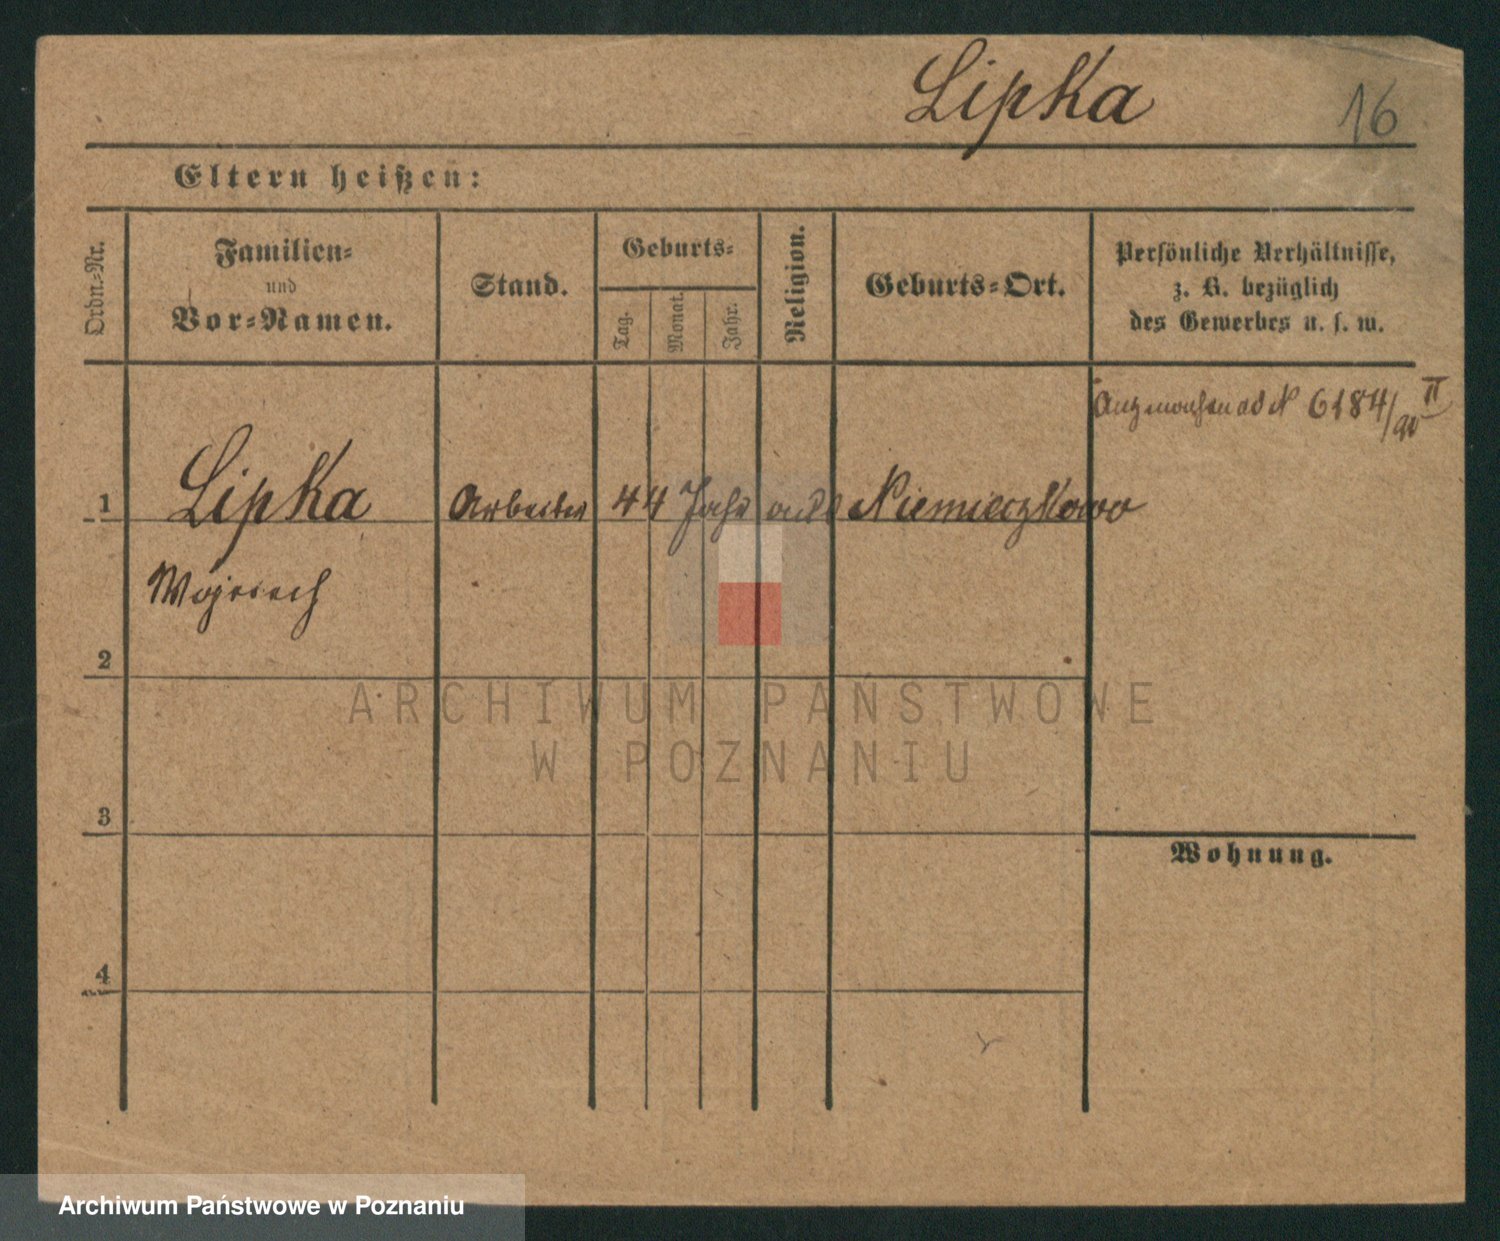 Lipka
16
Eltern heißen:
Ordn.-Nr.
Familien-
und
Vor-Namen.
Stand.
Geburts-
Tag.
Monat.
Jahr.
Religion.
Geburts-Ort.
Persönliche Verhältnisse,
z. B. bezüglich
des Gewerbes u. s. w.
ad N 6184/90 II
1 Lipka Arbeiter 44 Jahr alt Niemieczkowo
Wojciech
2
3
4
Wohnung.
ARCHIWUM PAŃSTWOWE
W POZNANIU
Archiwum Państwowe w Poznaniu